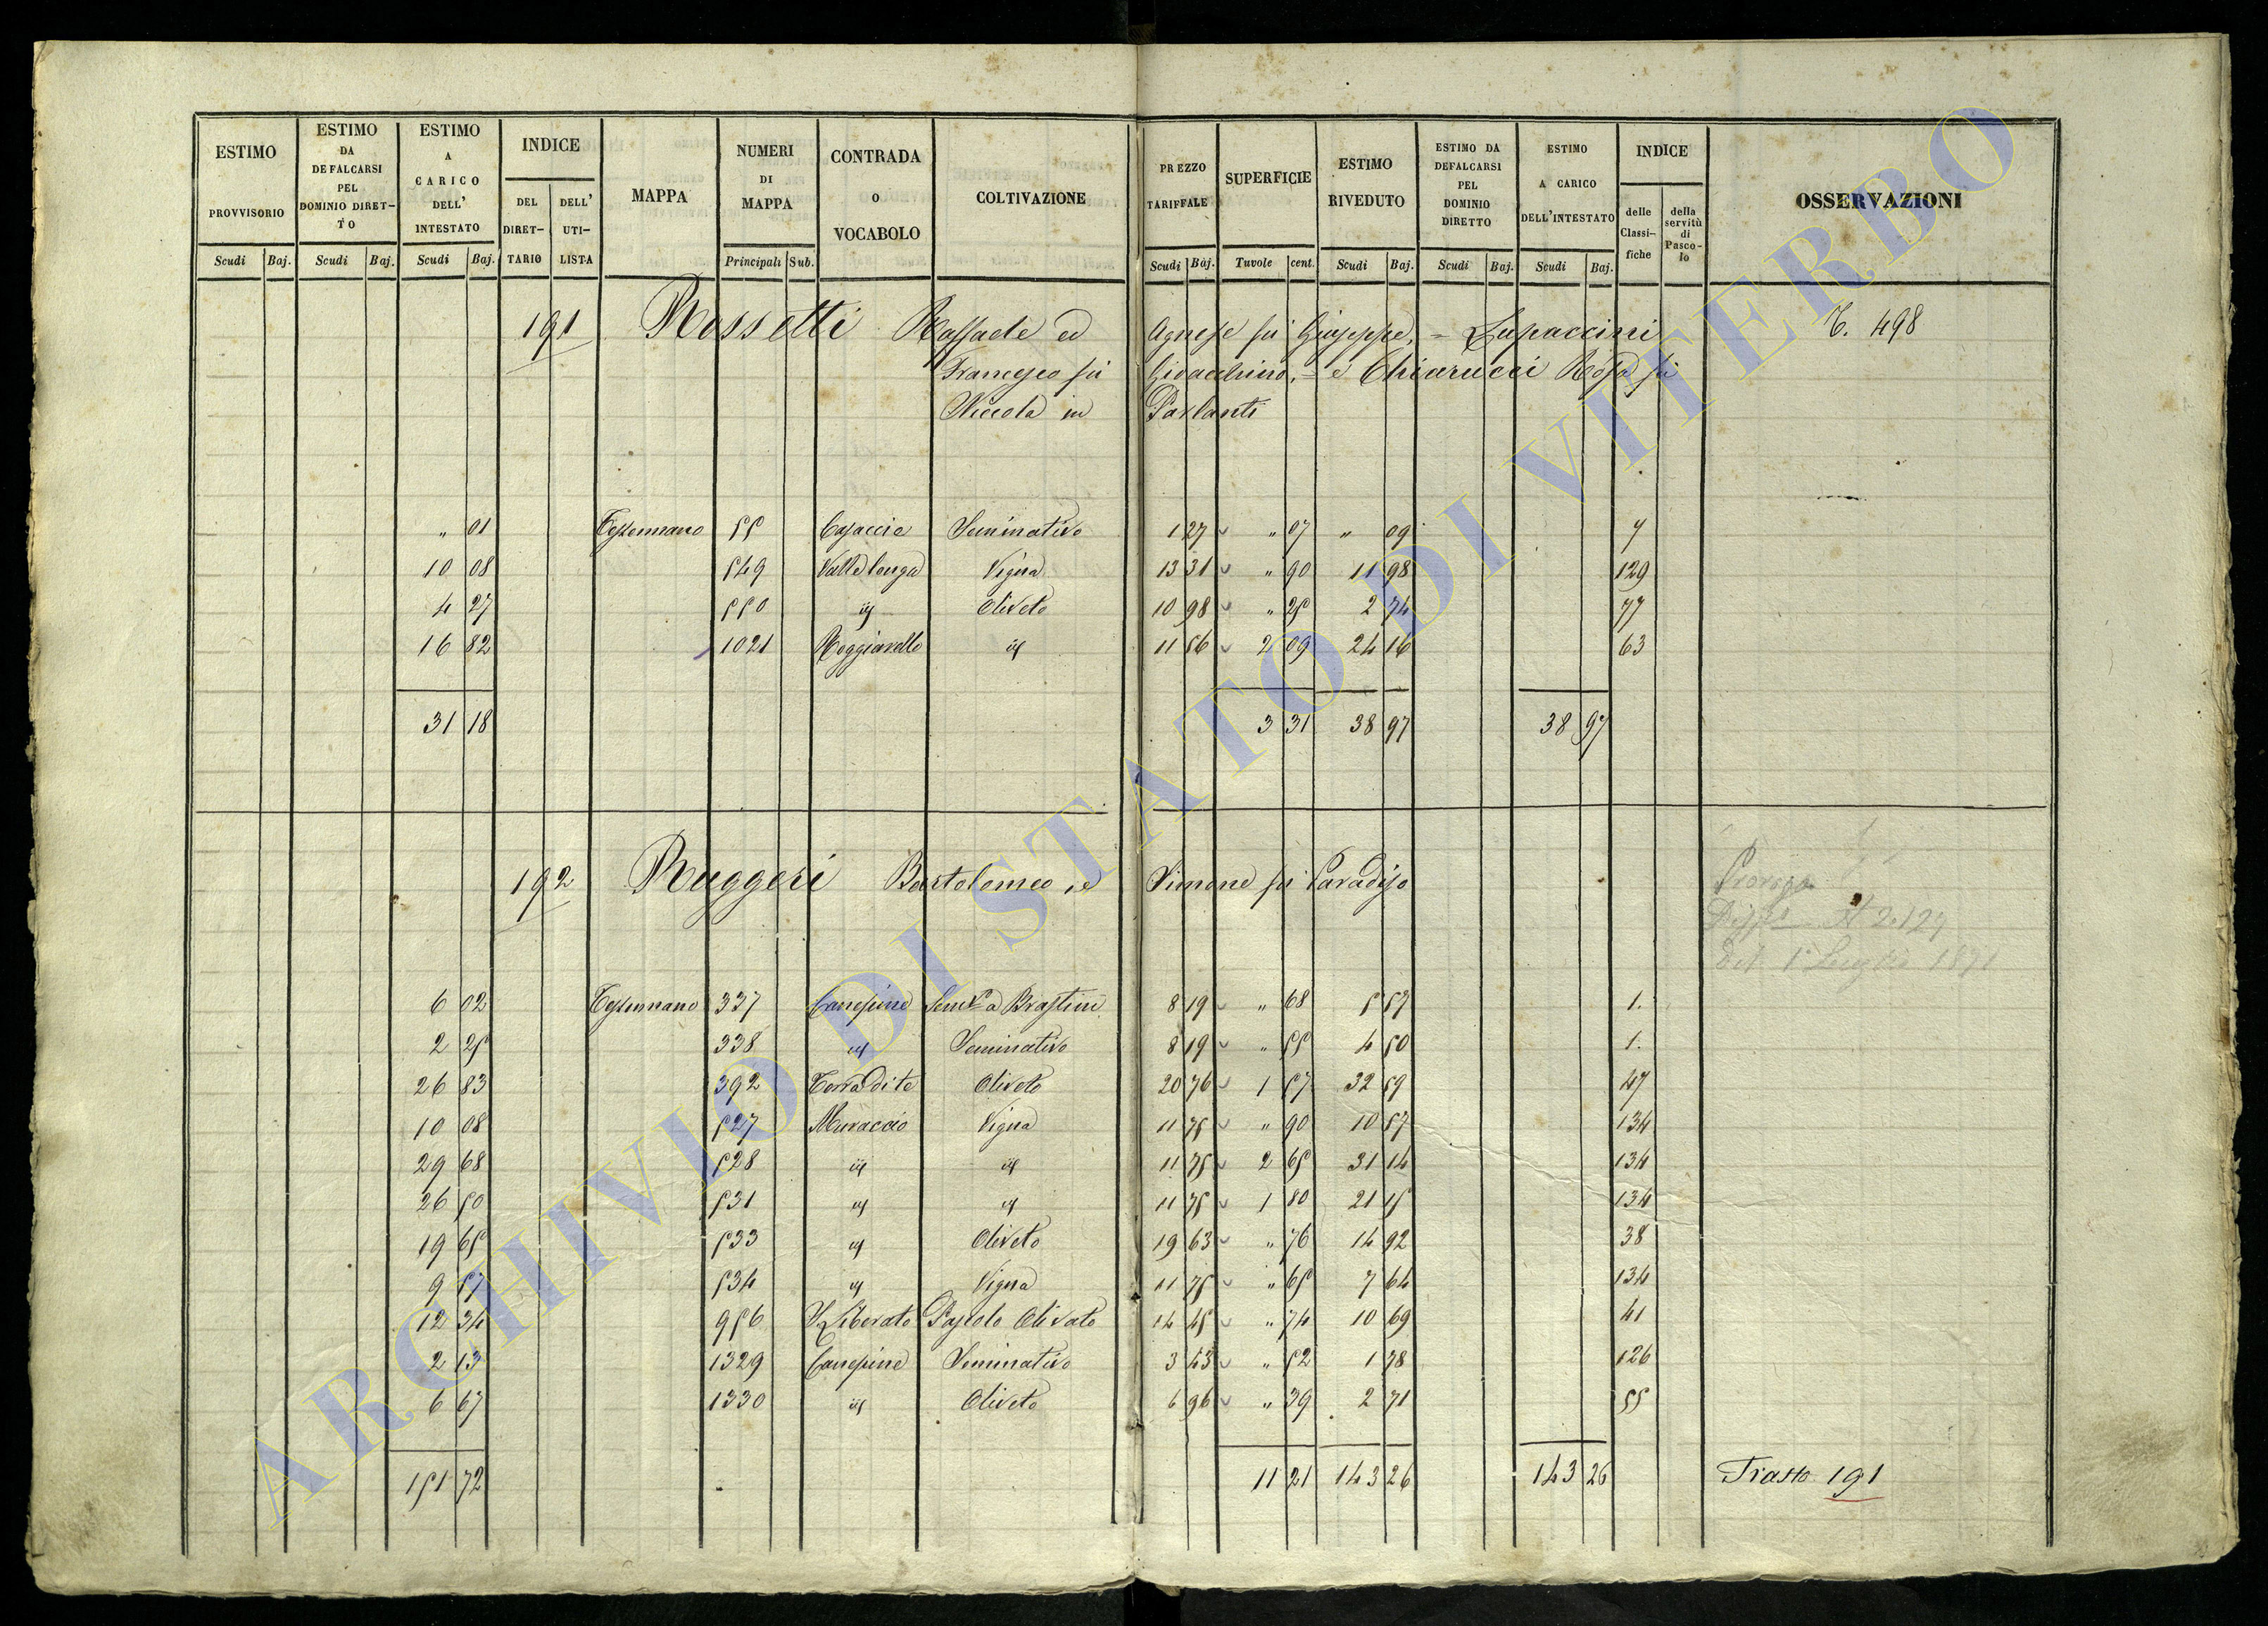 ESTIMO PROVVISORIO Scudi Baj.
ESTIMO DA DEFALCARSI PEL DOMINIO DIRETTO Scudi Baj.
ESTIMO A CARICO DELL' INTESTATO Scudi Baj.
INDICE DEL DIRETTARIO DELL' UTILISTA
MAPPA
NUMERI DI MAPPA Principali Sub.
CONTRADA o VOCABOLO
COLTIVAZIONE
PREZZO TARIFFALE Scudi Baj.
SUPERFICIE Tavole cent.
ESTIMO RIVEDUTO Scudi Baj.
ESTIMO DA DEFALCARSI PEL DOMINIO DIRETTO Scudi Baj.
ESTIMO A CARICO DELL'INTESTATO Scudi Baj.
INDICE delle Classifiche della servitù di Pascolo
OSSERVAZIONI
191 Rossetti Raffaele ed Agnese fu Giuseppe, = Lupaccini T. 498
Francesco fu Gioacchino, = e Chiarucci Rosa fu
Niccola in Parlanti
" 01 Tessennano 55 Casaccie Seminativo 1 27 " 07 " 09 7
10 08 549 Valle longa Vigna 13 31 " 90 11 98 129
4 27 550 id Oliveto 10 98 " 25 2 74 77
16 82 1021 Poggiarello id 11 56 2 09 24 16 63
31 18 3 31 38 97 38 97
192 Ruggeri Bartolomeo, e Simone fu Paradiso
del 1° Luglio 1871
6 02 Tessennano 337 Canepine Semvo a Brastim 8 19 " 68 5 57 1.
2 25 338 id Seminativo 8 19 " 55 4 50 1.
26 83 392 Terradite Oliveto 20 76 1 57 32 59 47
10 08 527 Muraccio Vigna 11 75 " 90 10 57 134
29 68 528 id id 11 75 2 65 31 14 134
26 50 531 id id 11 75 1 80 21 15 134
19 65 533 id Oliveto 19 63 " 76 14 92 38
9 57 534 id Vigna 11 75 " 65 7 64 134
12 34 956 S. Liberato Pascolo Olivato 14 45 " 74 10 69 41
2 13 1329 Canepine Seminativo 3 43 " 52 1 78 126
6 67 1330 id Oliveto 6 96 " 39 2 71 55
151 72 11 21 143 26 143 26 Trasto 191
ARCHIVIO DI STATO DI VITERBO